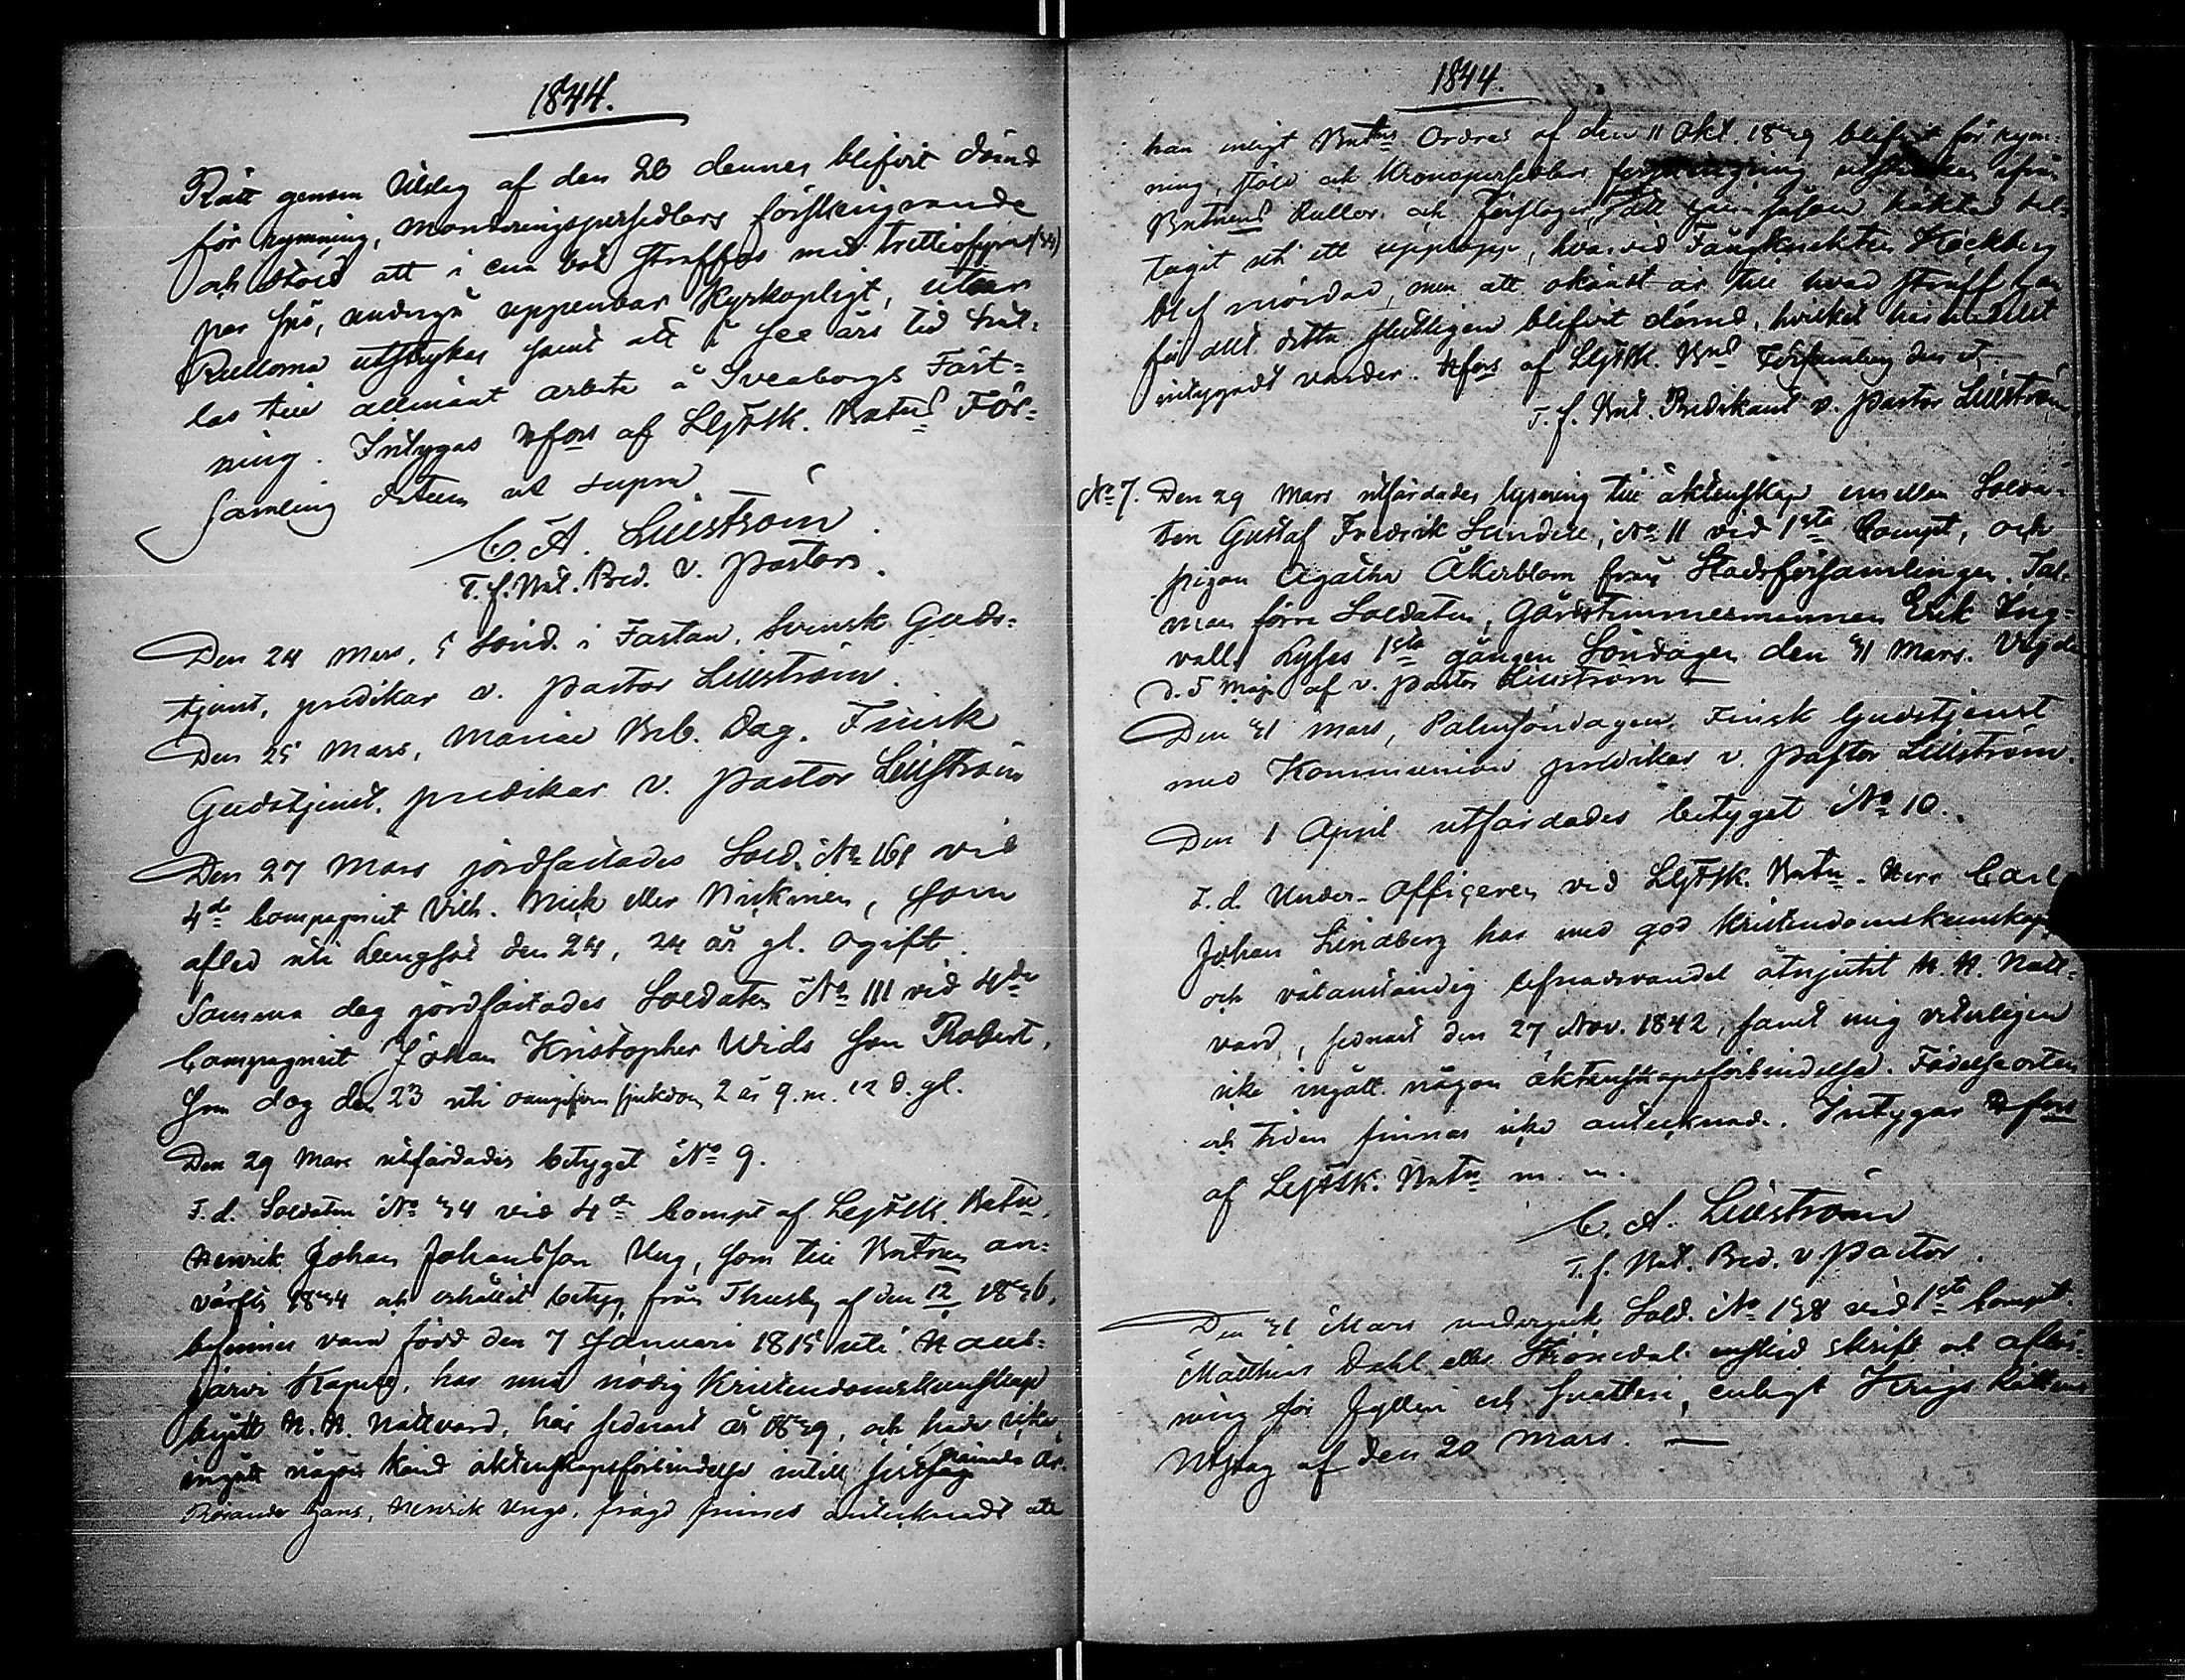 1844.
Rätt genom Utslag af den 20 dennes blifvit dömd
för rymning, monderingspersedlars förskingrande
och stöld att i ena bot straffas med trettiofyra (34)
par spö, undergå uppenbar Kyrkopligt, utur
Rullorna utstrykas samt att i sex års tid hål-
las till allmänt arbete å Sveaborgs Fäst-
ning. Intygas Hfors af LGFSk. Batns För-
samling datum ut supra
C. A. Lillström.
T. f. Bat. Pred. v. Pastor.
Den 24 Mars, 5 Sönd. i Fastan, Svensk Guds-
tjenst, predikar v. Pastor Lillström.
Den 25 Mars, Mariæ Beb. Dag. Finsk
Gudstjenst, predikar v. Pastor Lillström
Den 27 Mars jordfästades Sold. No 161 vid
4de Compagniet Vilh. Nick eller Nickinen, som
afled uti Lungsot den 24, 24 år gl. ogift.
Samma dag jordfästades Soldaten No 111 vid 4de
Compagniet Johan Kristopher Wids son Robert,
som dog den 23 uti oangifven sjukdom 2 år 9. m. 12 d. gl.
Den 29 Mars utfärdades betyget No 9.
F. d. Soldaten No 34 vid 4de Compt af LGFSk. Batn.
Henrik Johan Johansson Ung, som till Batnen an-
värfts 1834 och erhållit betyg från Thusby af den 12 1836,
befinnes vara född den 7 Januari 1815 uti Haut-
järvi Kapell, har med nödig Kristendomskunskap
begått H. H. Nattvard, här sednast år 1839, och hade icke
ingått någon känd äktenskapsförbindelse intill sistsagnämnda år.
Rörande hans, Henrik Ungs, frägd finnes antecknadt att
1844.
han enligt Batns Ordres af den 11 Okt. 1839 blifvit för rym-
ning, stöld och Kronopersedlars förskingring utstruken ifrån
Batnens Rullor och Förslager, att han såsom häktad del-
tagit uti ett upplopp, hvarvid Fångknekten Höckberg
blef mördad, men att okändt är till hvad straff han
för allt detta slutligen blifvit dömd, hvilket härmedelst
intygadt varder. Hfors af LGFSk. Bns Församling den ut
T. f. Bat. Predikant v. Pastor Lillström
No 7. Den 29 Mars utfärdades lysning till äktenskap emellan Solda-
ten Gustaf Fredrik Lundell, No 11 vid 1sta Compt, och
pigan Agatha Åkerblom från Stadsförsamlingen. Tal-
man förre Soldaten, Gårdstimmermannen Erik Ing-
vall. Lyses 1sta gången Söndagen den 31 Mars. Vigde
d. 5 Maj af v. Pastor Lillström
Den 31 Mars, Palmsöndagen, Finsk Gudstjenst
med Kommunion predikar v. Pastor Lillström.
Den 1 April utfärdades betyget No 10.
F. d. Under-Officeren vid LGFSk. Batn- Herr Carl
Johan Lindberg har med god Kristendomskunskap
och välanständig lefnadsvandel åtnjutit H. H. Natt-
vard, sednast den 27 Nov. 1842, samt mig veterligen
icke ingått någon äktenskapsförbindelse. Födelseorten
och tiden finnas icke antecknade. Intygar Hfors
af LGFSk. Batn m. m.
C. A. Lillström
T. f. Bat. Pred. v. Pastor.
Den 31 Mars undergick Sold. No 138 vid 1sta Compt.
Matthias Dahl eller Strömdal enskild skrift och aflös-
ning för fylleri och snatteri, enligt Krigs Rättens
Utslag af den 20 Mars.